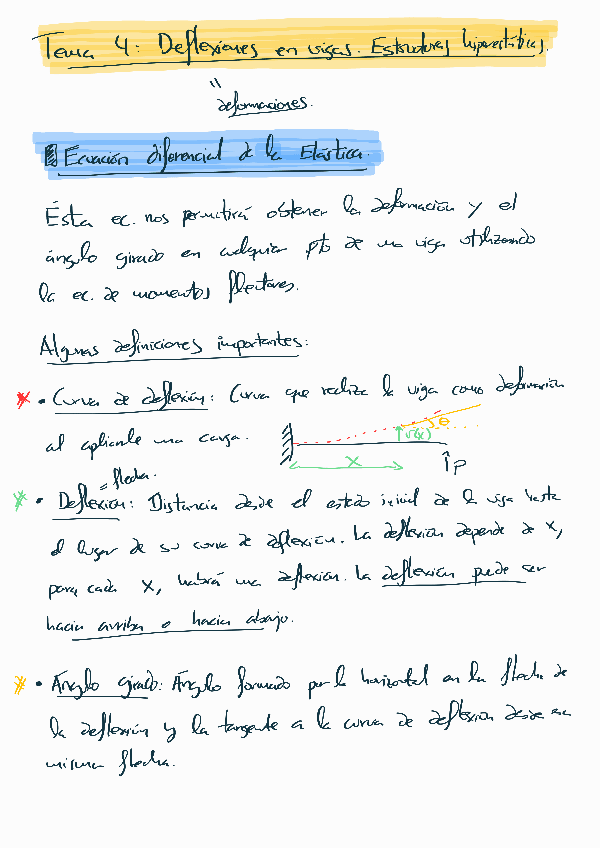 Tema 4: Deflexiones en vigas. Estructuras hiperestáticas.
"
deformaciones.
Ecuación diferencial de la Elástica.
Ésta ec. nos permitirá obtener la deformación y el
ángulo girado en cualquier pto de una viga utilizando
la ec. de momentos flectores.
Algunas definiciones importantes:
• Curva de deflexión: Curva que realiza la viga como deformación
al aplicarle una carga.
θ
v(x)
x
P
= flecha.
• Deflexión: Distancia desde el estado inicial de la viga hasta
el lugar de su curva de deflexión. La deflexión depende de x,
para cada x, habrá una deflexión. La deflexión puede ser
hacia arriba o hacia abajo.
• Ángulo girado: Ángulo formado por la horizontal en la flecha de
la deflexión y la tangente a la curva de deflexión desde esa
misma flecha.